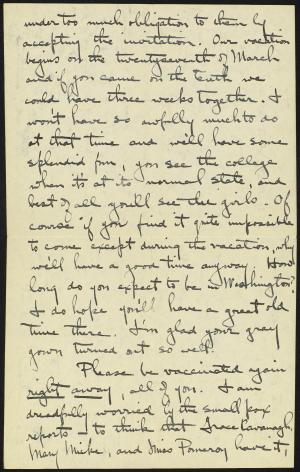 under too much obligation to them by
accepting the invitation. Our vacation
begins on the twentyseventh of March
and if you came on the tenth we
could have three weeks together. I
won't have so awfully much to do
at that time and we'll have some
splendid fun, you see the college
when its at its normal state, and
best of all you'll see the girls. Of
course if you find it quite impossible
to come except during the vacation, why
we'll have a good time anyway. How
long do you expect to be in Washington?
I do hope you'll have a great old
time there. I'm glad your gray
gown turned out so well.
Please be vaccinated again
right away, all of you. I am
dreadfully worried by the small pox
reports - to think that Grace Cavanagh,
Mary Mirke, and Miss Pomeroy have it,